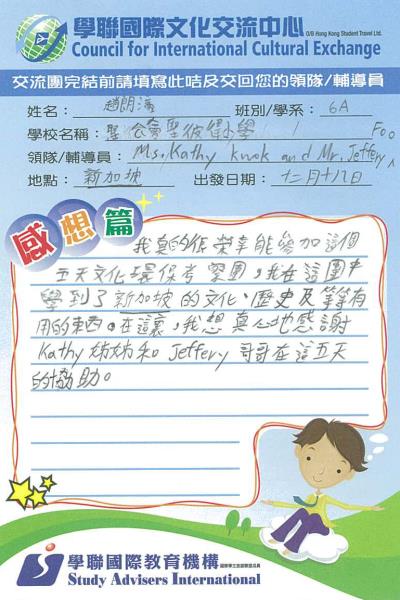 學聯國際文化交流中心 O/B Hong Kong Student Travel Ltd.
Council for International Cultural Exchange
交流團完結前請填寫此咭及交回您的領隊/輔導員
姓名： 趙朗滿 班別/學系： 6A
學校名稱： 聖公會聖彼得小學
領隊/輔導員： Ms. Kathy kwok and Mr. Jeffery Foo
地點： 新加坡 出發日期： 十二月十八日
感想篇
我真的係榮幸能參加這個
五天文化環保考察團，我在這團中
學到了新加坡的文化、歷史及等等有
用的東西。在這裏，我想真心地感謝
Kathy 姊姊和 Jeffery 哥哥在這五天
的協助。
學聯國際教育機構
Study Advisers International